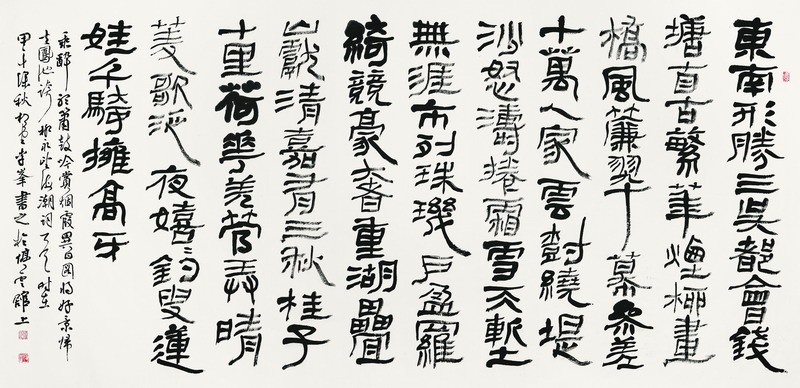 東南形勝三吳都會錢
塘自古繁華煙柳畫
橋風簾翠幕參差
十萬人家雲樹繞堤
沙怒濤捲霜雪天塹
無涯市列珠璣戶盈羅
綺競豪奢重湖疊
巘清嘉有三秋桂子
十里荷華羌管弄晴
菱歌泛夜嬉嬉釣叟蓮
娃千騎擁高牙
乘醉聽簫鼓吟賞烟霞異日圖將好景歸
去鳳池誇柳永望海潮詞時在
甲午深秋書之於館上